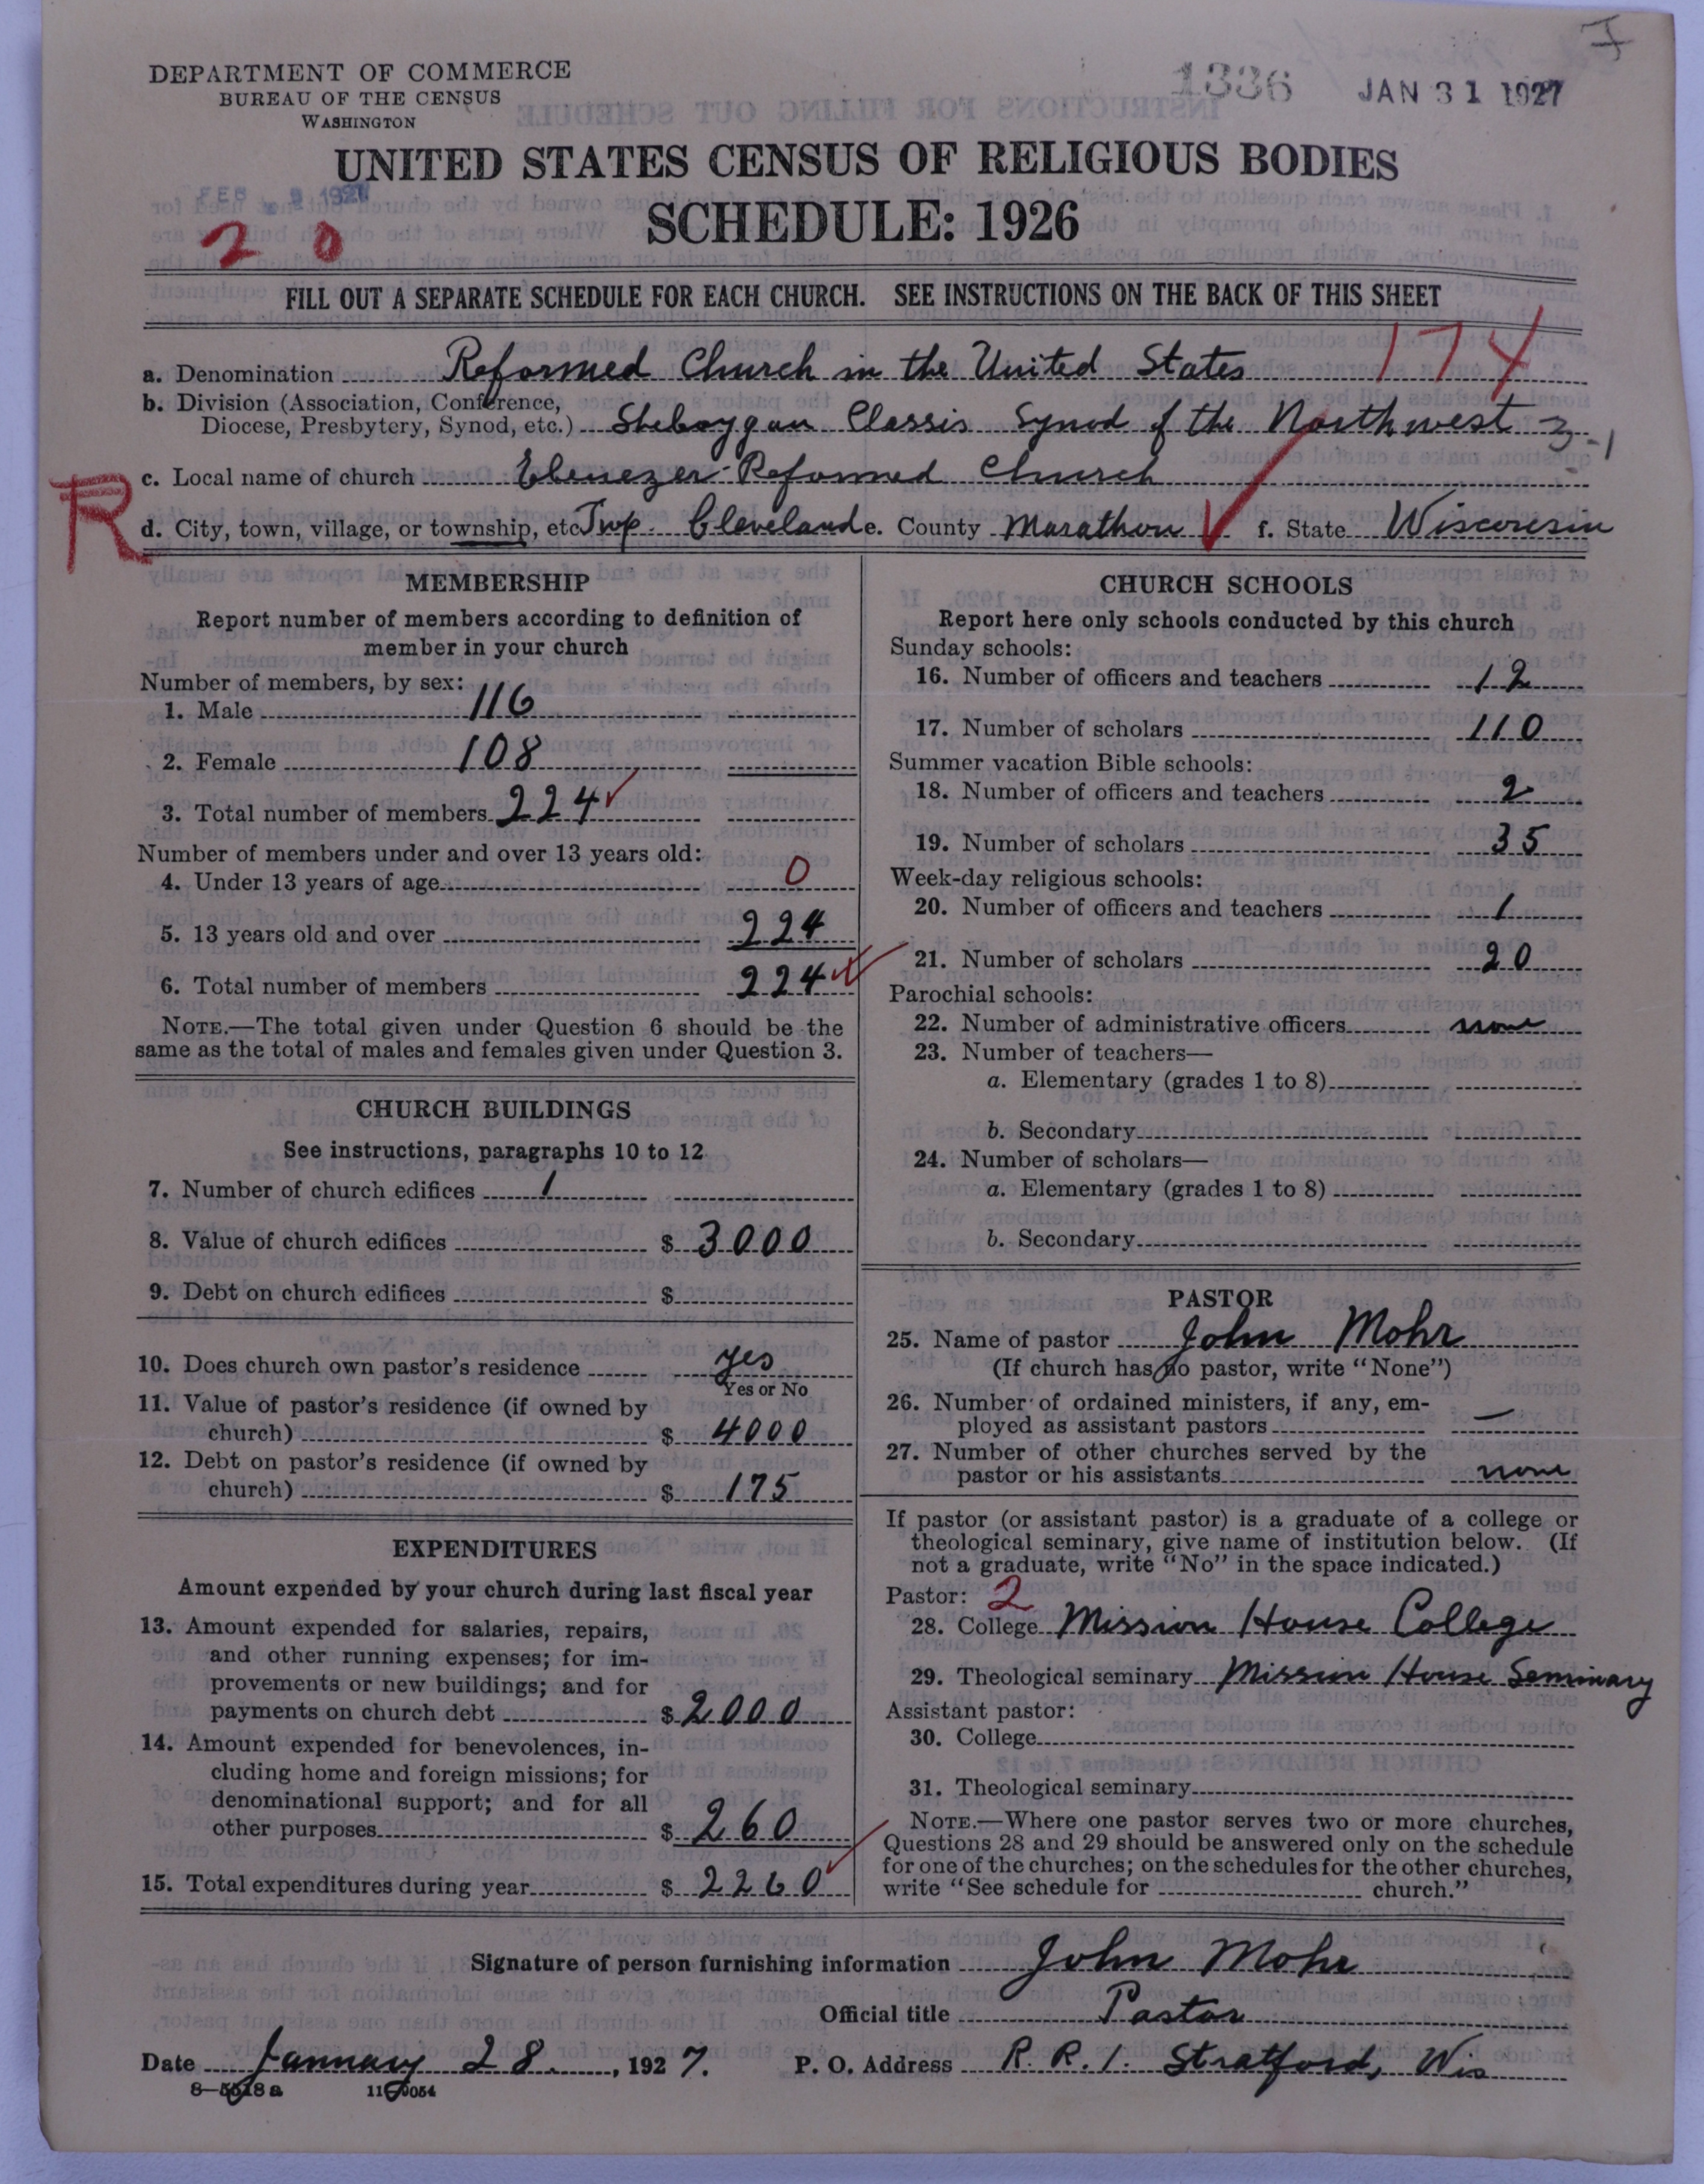 DEPARTMENT OF COMMERCE
BUREAU OF THE CENSUS
WASHINGTON
1336
JAN 31 1927
UNITED STATES CENSUS OF RELIGIOUS BODIES
FEB 1927
SCHEDULE: 1926
2 0
FILL OUT A SEPARATE SCHEDULE FOR EACH CHURCH. SEE INSTRUCTIONS ON THE BACK OF THIS SHEET
174
a. Denomination Reformed Church in the United States
b. Division (Association, Conference,
Diocese, Presbytery, Synod, etc.) Sheboygan Classis Synod of the Northwest 3-1
c. Local name of church Ebenezer Reformed Church
R
d. City, town, village, or township, etc. Twp. Cleveland e. County Marathon f. State Wisconsin
MEMBERSHIP
Report number of members according to definition of
member in your church
Number of members, by sex:
1. Male 116
2. Female 108
3. Total number of members 224
Number of members under and over 13 years old:
4. Under 13 years of age 0
5. 13 years old and over 224
6. Total number of members 224
NOTE.—The total given under Question 6 should be the
same as the total of males and females given under Question 3.
CHURCH BUILDINGS
See instructions, paragraphs 10 to 12
7. Number of church edifices 1
8. Value of church edifices $ 3000
9. Debt on church edifices $
10. Does church own pastor's residence yes
Yes or No
11. Value of pastor's residence (if owned by
church) $ 4000
12. Debt on pastor's residence (if owned by
church) $ 175
EXPENDITURES
Amount expended by your church during last fiscal year
13. Amount expended for salaries, repairs,
and other running expenses; for im-
provements or new buildings; and for
payments on church debt $ 2000
14. Amount expended for benevolences, in-
cluding home and foreign missions; for
denominational support; and for all
other purposes $ 260
15. Total expenditures during year $ 2260
CHURCH SCHOOLS
Report here only schools conducted by this church
Sunday schools:
16. Number of officers and teachers 12
17. Number of scholars 110
Summer vacation Bible schools:
18. Number of officers and teachers 2
19. Number of scholars 35
Week-day religious schools:
20. Number of officers and teachers 1
21. Number of scholars 20
Parochial schools:
22. Number of administrative officers none
23. Number of teachers—
a. Elementary (grades 1 to 8)
b. Secondary
24. Number of scholars—
a. Elementary (grades 1 to 8)
b. Secondary
PASTOR
25. Name of pastor John Mohr
(If church has no pastor, write "None")
26. Number of ordained ministers, if any, em-
ployed as assistant pastors —
27. Number of other churches served by the
pastor or his assistants none
If pastor (or assistant pastor) is a graduate of a college or
theological seminary, give name of institution below. (If
not a graduate, write "No" in the space indicated.)
Pastor: 2
28. College Mission House College
29. Theological seminary Mission House Seminary
Assistant pastor:
30. College
31. Theological seminary
NOTE.—Where one pastor serves two or more churches,
Questions 28 and 29 should be answered only on the schedule
for one of the churches; on the schedules for the other churches,
write "See schedule for church."
Signature of person furnishing information John Mohr
Official title Pastor
Date January 28, 1927. P. O. Address R. R. 1. Stratford, Wis
8—5518 a